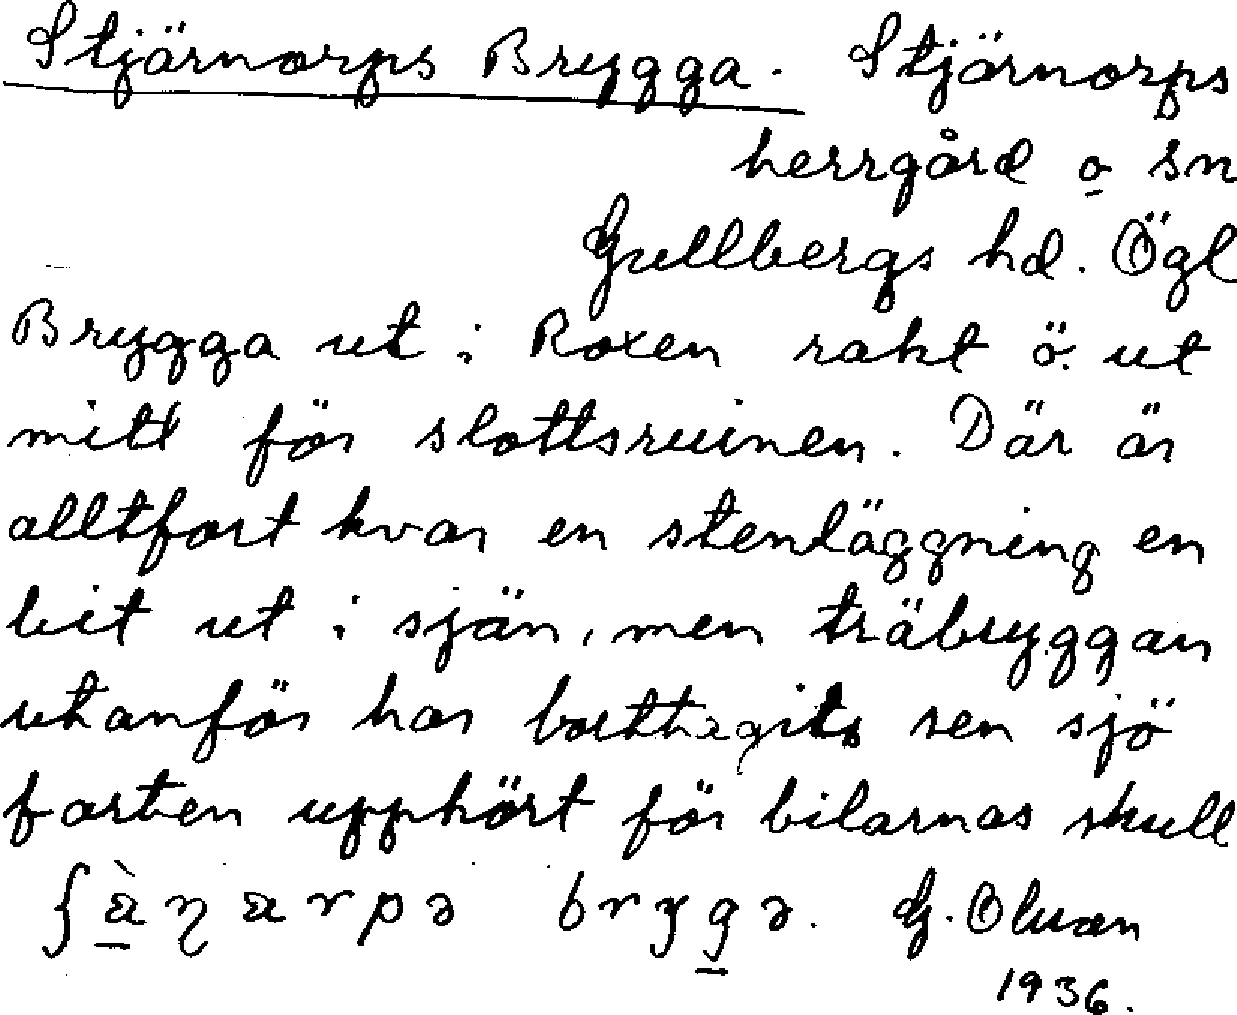 Stjärnorps Brygga. Stjärnorps
herrgård o sn
Gullbergs hd. Ögl
Brygga ut i Roxen rakt ö. ut
mitt för slottsruinen. Där är
alltfort kvar en stenläggning en
bit ut i sjön, men träbryggan
utanför har borttagits sen sjö
farten upphört för bilarnas skull
brygə. G. Olson
1936.